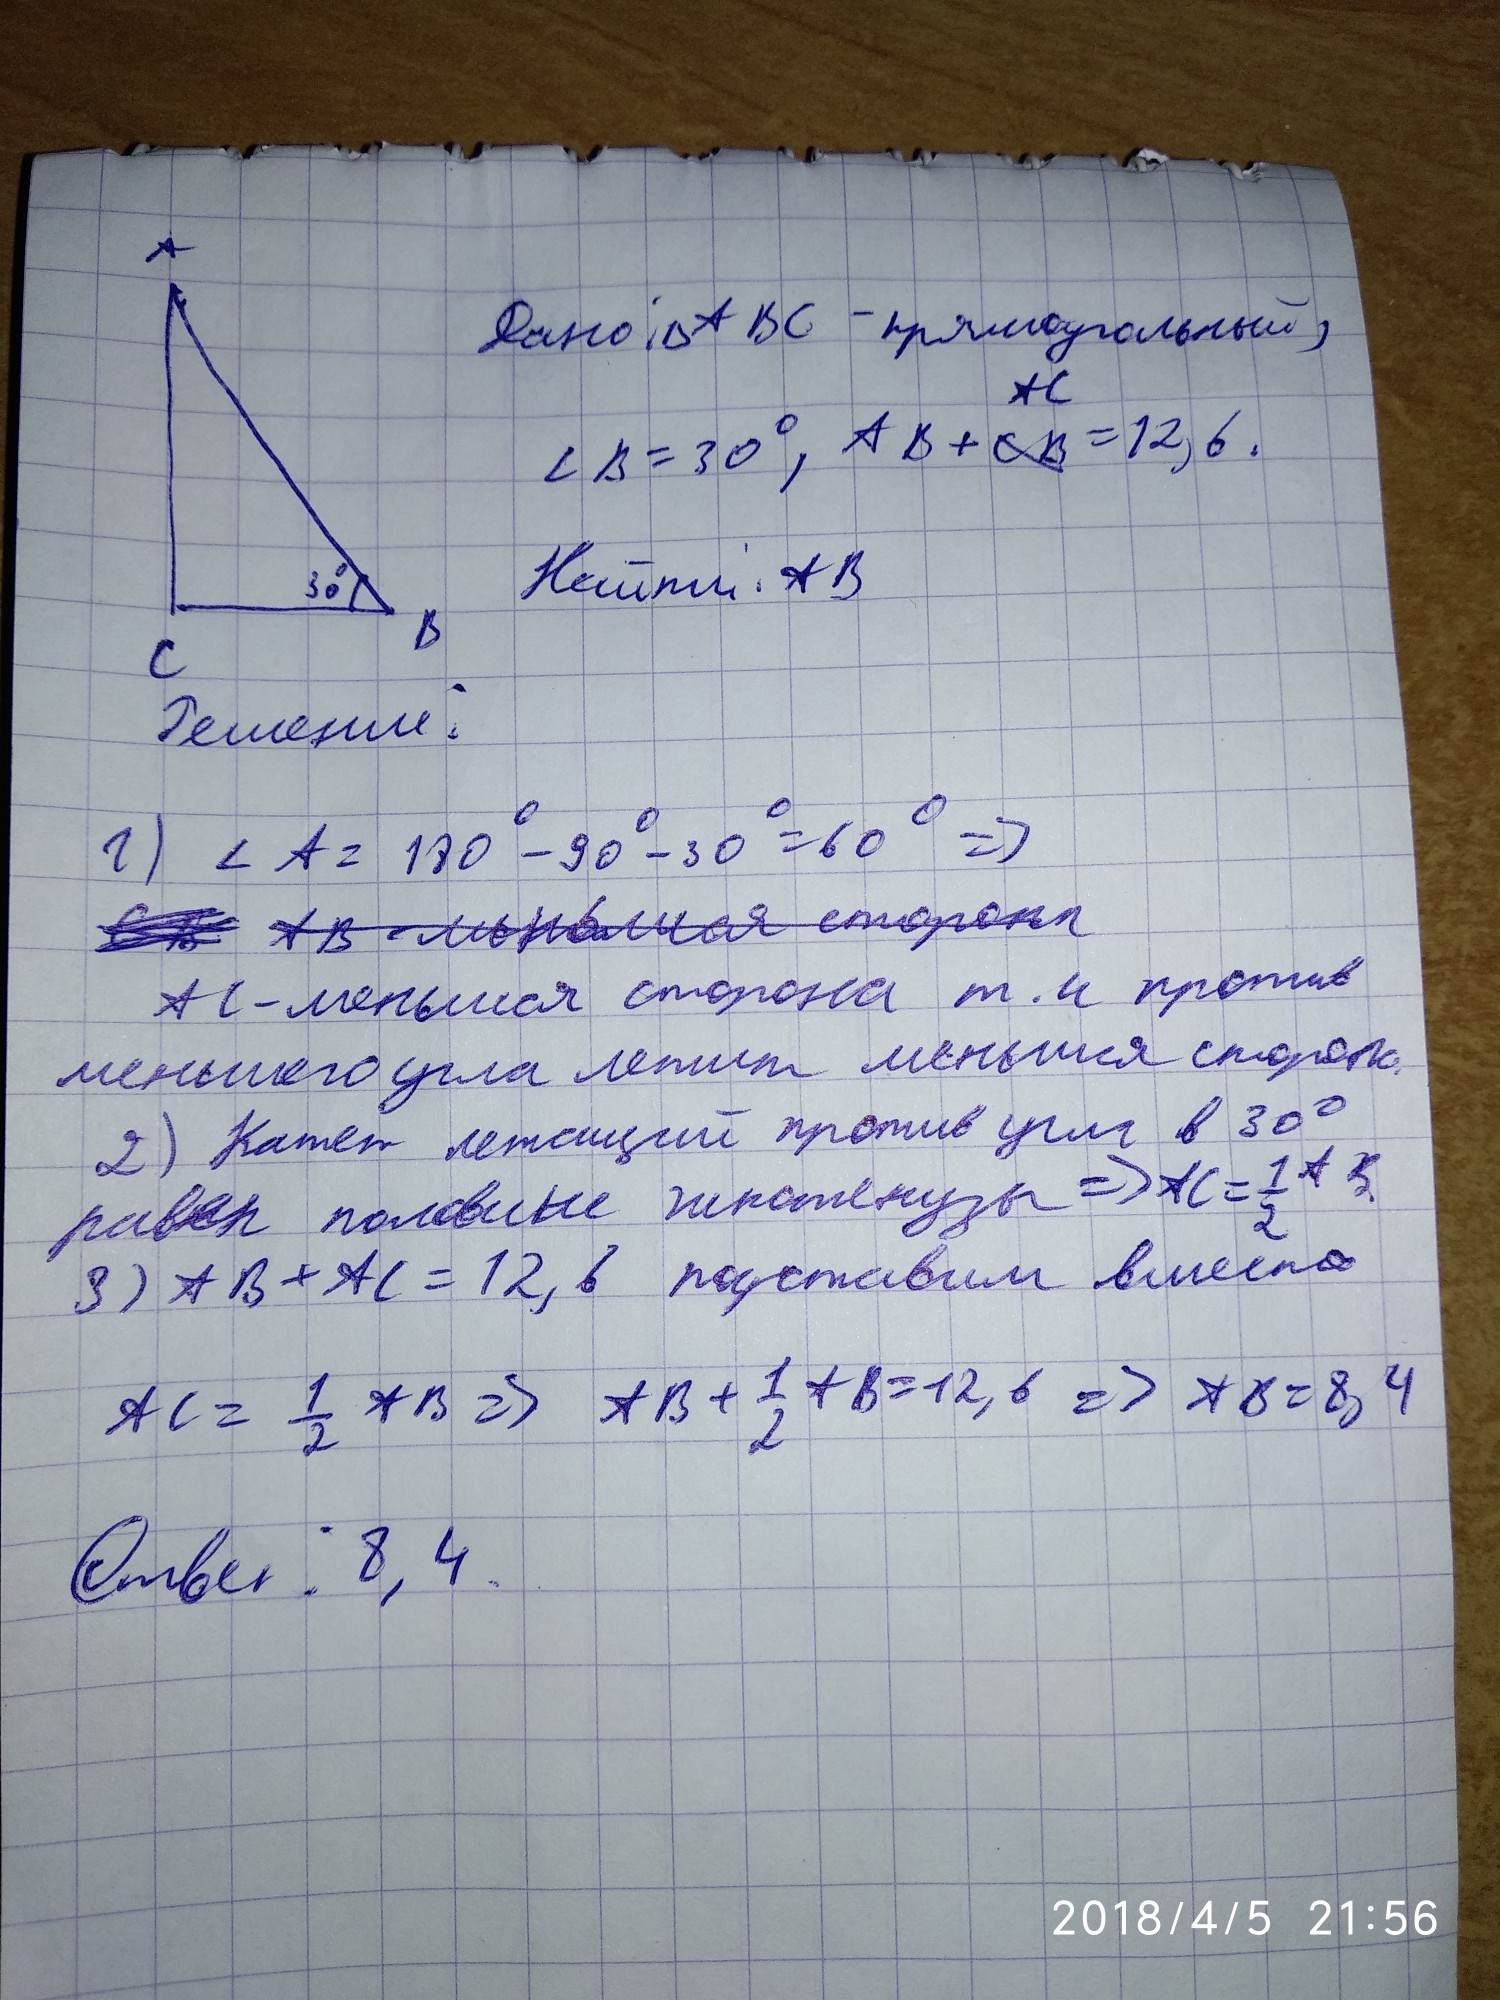 A
Дано: △ABC - прямоугольный,
AC
∠B=30°, AB+CB=12,6.
30°
Найти: AB
B
C
Решение:
1) ∠A= 180°-90°-30°=60° =>
AB - меньшая сторона
AC-меньшая сторона т.к против
меньшего угла лежит меньшая сторона.
2) Катет лежащий против угла в 30°
равен половине гипотенузы => AC=1/2 AB.
3) AB+AC=12,6 подставим вместо
AC= 1/2 AB => AB+1/2 AB=12,6 => AB=8,4
Ответ: 8,4.
2018/4/5 21:56